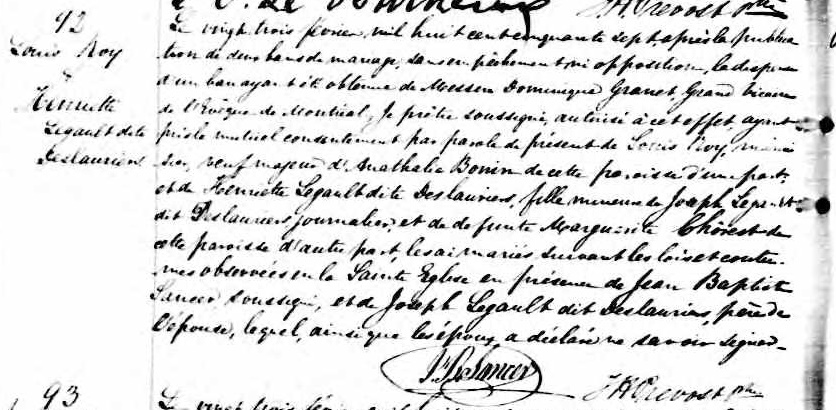 JH Prevost ptre
92
Louis Roy
&
Henriette
Legault dite
Deslauriers
Le vingt trois février, mil huit cent cinquante sept, après la publica
tion de deux bans de mariage, sans empêchement ni opposition, la dispense
d'un ban ayant été obtenue de Messire Dominique Granet, Grand Vicaire
de l'Evêque de Montréal, Je prêtre soussigné, autorisé à cet effet, ayant
pris le mutuel consentement par parole de présent de Louis Roy, menui
sier, veuf majeur d'Mathalie Bonin de cette paroisse d'une part,
et de Henriette Legault dite Deslauriers, fille mineure de Joseph Legault
dit Deslauriers journalier, et de defunte Marguerite Chôrest de
cette paroisse d'autre part, les ai mariés, suivant les lois et coutu-
mes observées en la Sainte Eglise en présence de Jean Baptiste
Sancer, soussigné, et de Joseph Legault dit Deslauriers, père de
l'épouse, lequel, ainsi que les époux, a déclaré ne savoir signer-
J. Bte Sancer
JH Prevost ptre
93
Le vingt trois février